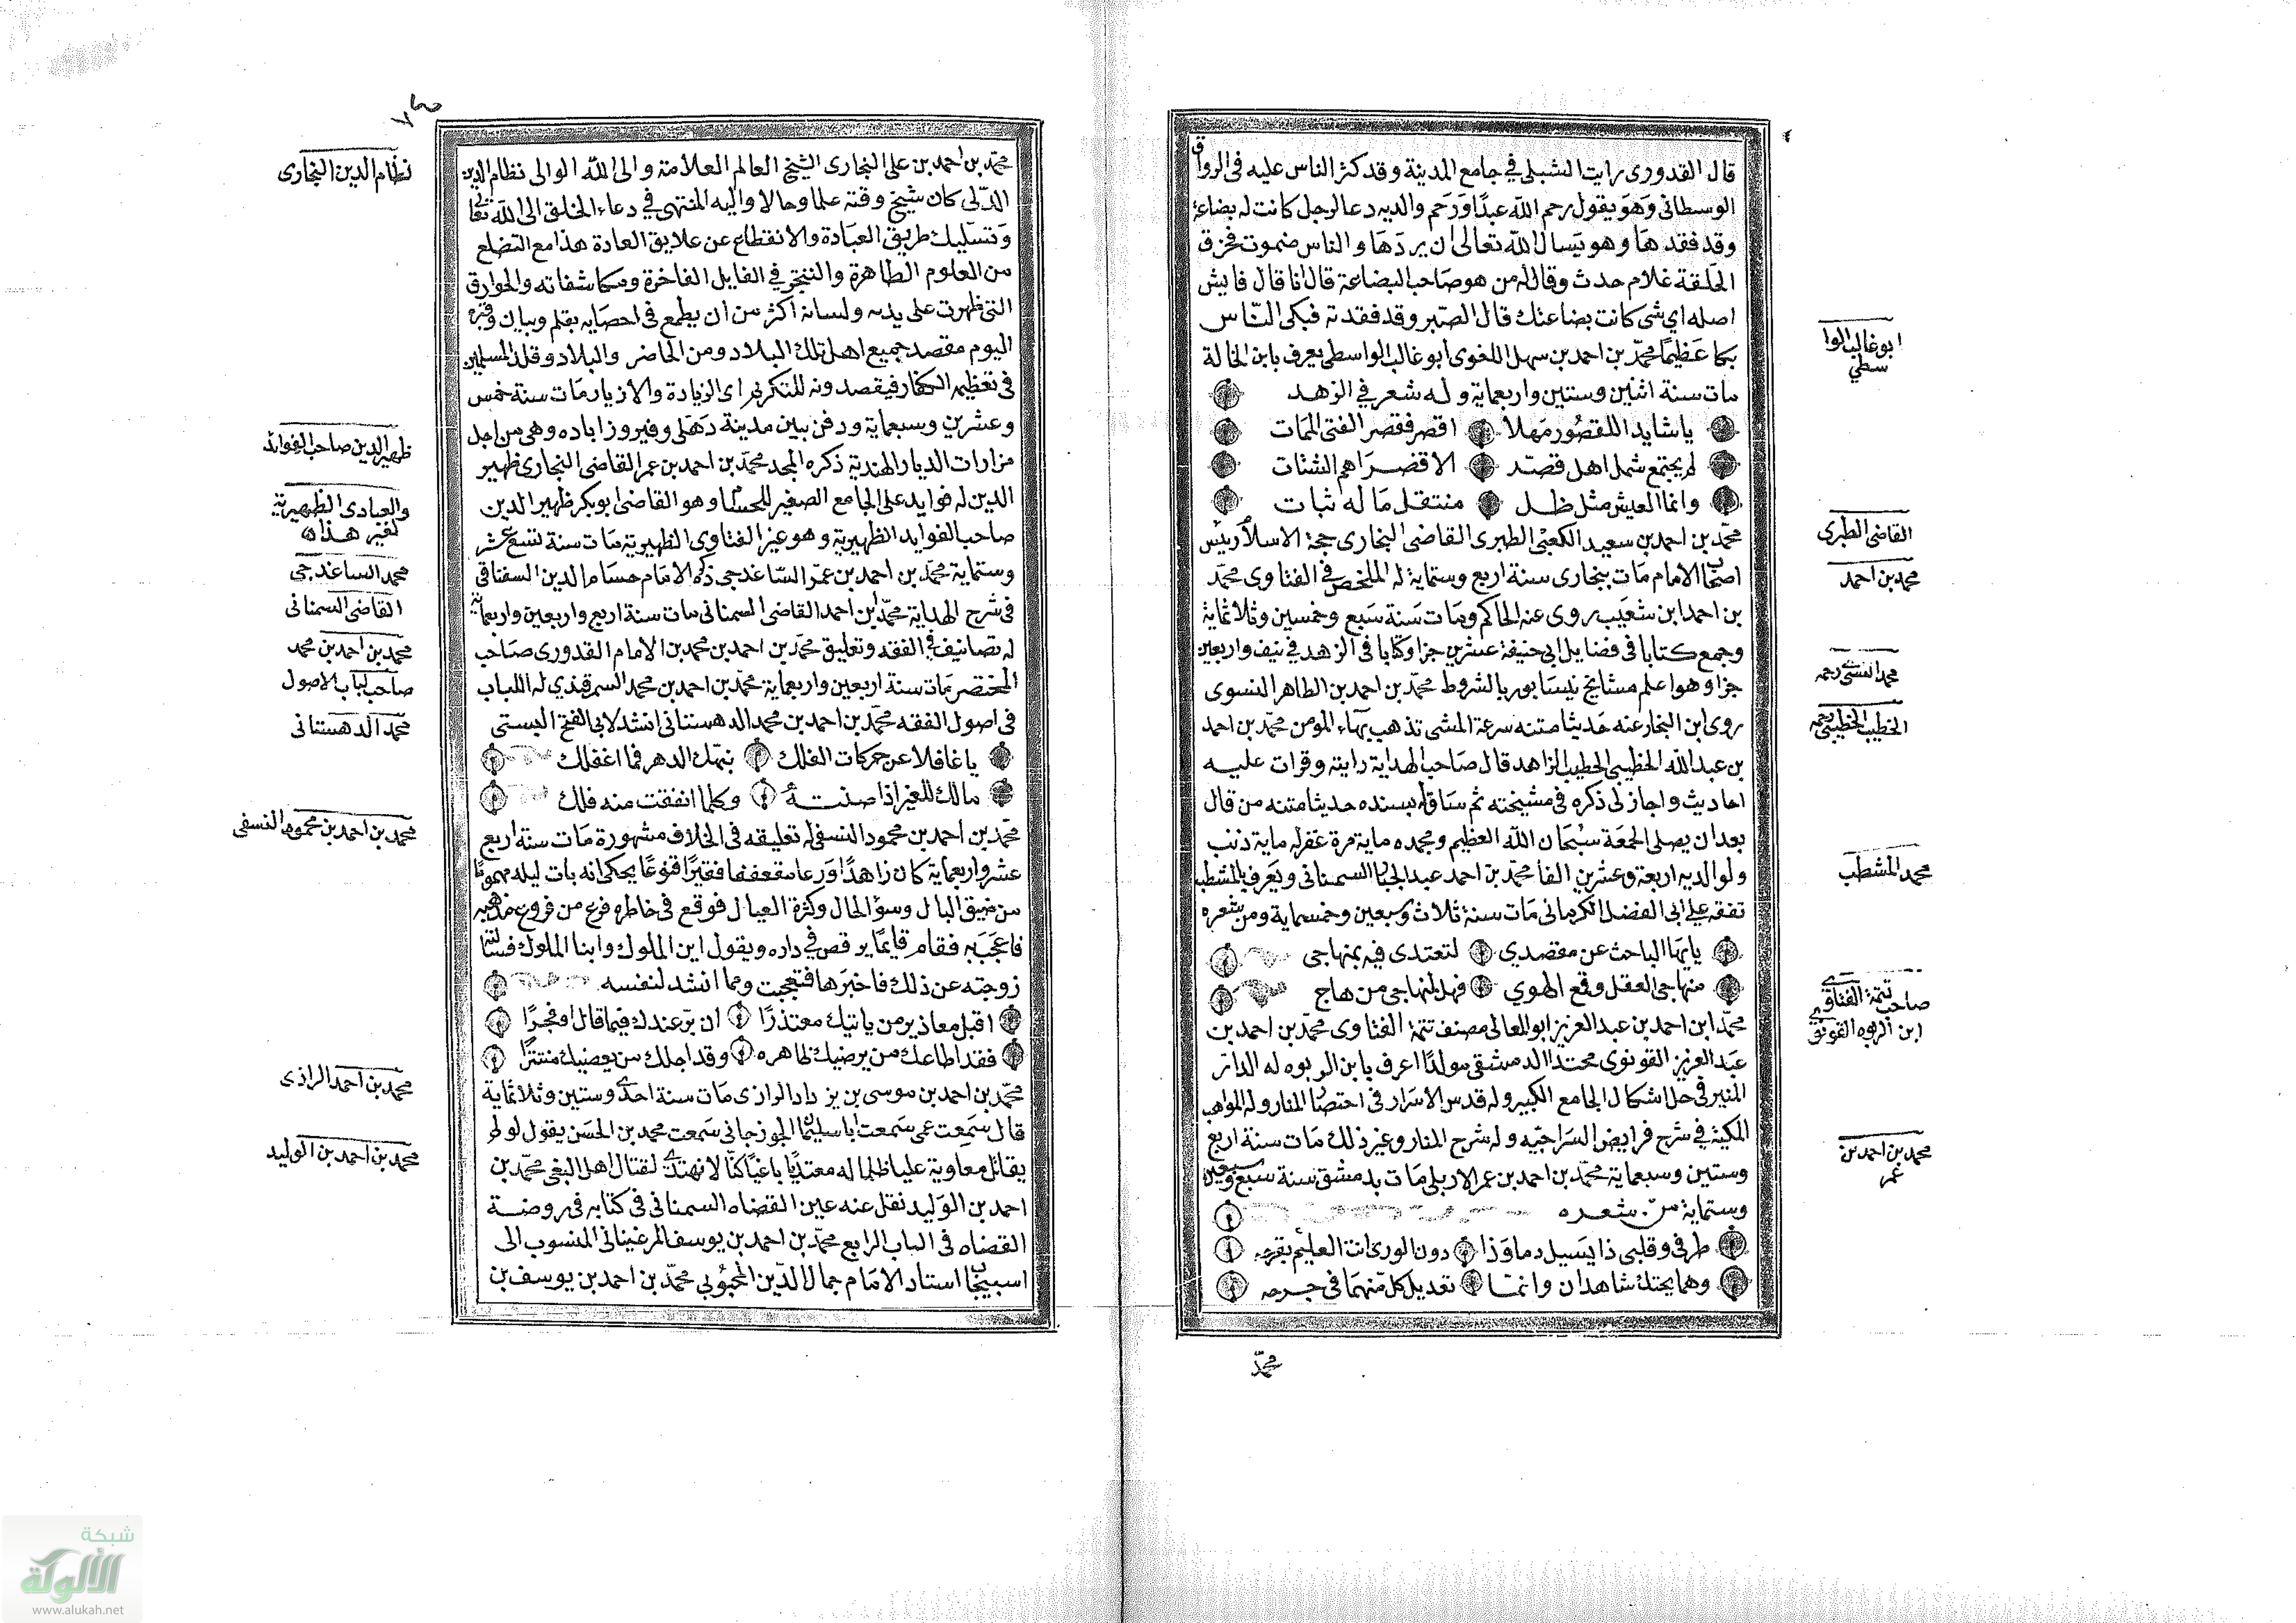 قال القدورى رايت الشبلى في جامع المدينة وقد كثر الناس عليه فى الرواق
الوسطانى وهو يقول رحم الله عبدًا وَرَحم والديه دعا لرجل كانت له بضاعة
وقد فقدها وهو يَسال الله تعالى ان يردهَا والناس صموت فخرق
الحلقة غلام حدث وقال له من هو صَاحب البضاعة قال انا قال فايش
اصله اي شى كانت بضاعتك قال الصّبر وقد فقدته فبكى النّاس
بكاءً عَظيمًا محمّد بن احمد بن سهل اللغوى ابو غالب الواسطى يعرف بابن الخالة
مات سنة اثنين وستين واربعماية وله شعر في الزهد
يا شايد اللقصُور مَهلا اقصر فقصر الفتى الممَات
لم يجتمع شمل اهل قصّد الا قصرَاهم الشتات
وانما العيش مثل ظل منتقل مَا له ثبات
محمّد بن احمد بن سعيد الكعبى الطبرى القاضى البخارى حجة الاسلام رئيس
اصحاب الامام مَات ببخارى سنة اربع وستماية له الملخص في الفتاوى محمّد
بن احمد ابن شعَيب روى عنه الحاكم ومَات سَنة سَبع وخمسين وثلاثماية
وجمع كتابا فى فضايل ابى حنيفة عشرين جزا وكتابا فى الزهد في نيف واربعين
جزا وهو اعلم مشايخ نيسَابور بالشروط محمّد بن احمد بن الطاهر النسوى
روى ابن النجار عنه حَديثا متنه سرعة المشى تذهب بهاء المومن محمّد بن احمد
بن عبد الله الخطيبى الخطيب الزاهد قال صَاحب الهداية رايته وقرات عليه
احاديث واجاز لى ذكره فى مشيخته ثم سَاق له بسنده حديثا متنه من قال
بعد ان يصلى الجمعَة سبُحَان الله العظيم وبحمده ماية مرة غفر له ماية ذنب
ولوالديه اربعة وعشرين الفا محمّد بن احمد عبد الجبار السمنانى ويَعرف بالمشطب
تفقه على ابى الفضل الكرمانى مَات سنة ثلاث وسبعين وخمسماية ومن شعره
يا يهَا الباحث عن مقصدي لتعتدى فيه بمنهاجى
منهاجى العقل وقع الهوي فهل لمنهاجى من هاج
محمّد ابن احمد بن عبد العزيز ابو المعالى مصنف تتمة الفتاوى محمّد بن احمد بن
عبَد العزيز القونوى محتدا الدمشقى مولدًا عرف بابن الربوه له الدرّ
المنير فى حل اشكال الجامع الكبير وله قدس الاسَرار فى اختصَار المنار وله المواهب
المكية في شرح فرايض السَراجيّه وله شرح المنار وغير ذلك مَات سنة اربع
وستين وسبعماية محمّد بن احمد بن عمر الاربلى مَات بدمشق سنة سَبع وسبعين
وستماية من شعره
طرفى وقلبى ذا يَسيل دما وَذا دون الورى انت العليم بقرحه
وهما بحبك شاهدان وانمّا تعديل كل منهمَا فى جرحه
محمّد
ابو غالب الوا
سطي
القاضى الطبرى
محمد بن احمد
محمد النسوى رحمه
الخطيب الخطيبى رحمه
محمد المشطب
صاحب تتمة الفتاوى
ابن الربوه القونوى
محمد بن احمد بن
عمر
محمّد بن احمد بن على البخارى الشيخ العالم العلامة والى الله الوالى نظام الدين
الدّلى كان شيخ وقته علما وحالا واليه المنتهى في دعاء الخلق الى الله تعالى
وَتسليك طريق العبَادة والانقطاع عن علايق العادة هذا مع التضلع
من العلوم الظاهرة والتبحر في الفايل الفاخرة ومكاشفاته والخوارق
التى ظهرت على يديه ولسانه اكثر من ان يطمع فى احصايه بقلم وبيان وقبره
اليوم مقصد جميع اهل تلك البلاد ومن الحاضر والبلاد وقلد المسلمين
فى تعظيمه الكفار فيقصدونه للتكريم اى الزيادة والازيار مَات سنة خمس
وعشرين وسبعماية ودفن ببين مدينة دَهَلى وفيروزاباده وهى من اجل
مزارات الديار الهندية ذكره المجد محمّد بن احمد بن عمر القاضى البخارى ظهير
الدين له فوايد على الجامع الصغير للحسام وهو القاضى ابو بكر ظهير الدين
صاحب الفوايد الظهيرية وهو غير الفتاوى الظهيرية مَات سنة تسع عشر
وستماية محمّد بن احمد بن عمّر السّاغدجى ذكره الامَام حسَام الدين السغناقى
فى شرح الهداية محمّد ابن احمد القاضى السمنانى مات سنة اربع واربعين واربعماية
له تصانيف في الفقه وتعليق محمّد بن احمد بن محمد بن الامام القدورى صَاحب
المختصر مَات سنة اربعين واربعماية محمّد بن احمد بن محمد السمرقندي له اللباب
فى اصول الفقه محمّد بن احمد بن محمد الدهستانى انشد لابى الفتح البستى
يا غافلا عن حركات الفلك نبهك الدهر فما اغفلك
مالك للغير اذا صنته وكلما انفقت منه فلك
محمّد بن احمد بن محمود النسفى له تعليقه فى الخلاف مشهورة مَات سنة اربع
عشر واربعماية كان زاهدًا ورعا متعففا فقيرًا قنوعًا يحكى انه بات ليله مهمومًا
من ضيق البال وسوْ الحال وكثرة العيال فوقع فى خاطره فرع من فروع مذهبه
فاعجَبَه فقام قايمًا يرقص في داره ويقول اين الملوك وابنا الملوك فسالته
زوجته عن ذلك فاخبَرَها فتعجبت ومما انشد لنفسه
اقبل معاذير من ياتيك معتذرًا ان برّ عندك فيمَا قال او فجرًا
فقد اطاعك من يرضيك ظاهره وقد اجلك من يعصيك مستترًا
محمّد بن احمد بن موسى بن يزداد الرازى مَات سنة احدى وستين وثلاثماية
قال سَمِعت عمى سَمعت ابا سليمان الجوزجانى سَمعت محمد بن الحسَن يقول لو لم
يقاتل معاوية عليا ظلما له معتديًا باغيًا كنّا لا نهتدى لقتال اهل البغى محمّد بن
احمد بن الوَليد نقل عنه عين القضاه السمنانى فى كتابه فى روضة
القضاه فى الباب الرابع محمّد بن احمد بن يوسف المرغينانى المنسوب الى
اسبيجاب استاد الامَام جمال الدّين المحبُوبي محمّد بن احمد بن يوسف بن
نظام الدين البخارى
ظهير الدين صاحب الفوائد
والعبادى الظهيرية
لغير هذا
محمد الساغدجى
القاضى السمنانى
محمد بن احمد بن محمد
صاحب لباب الاصول
محمد الدهستانى
محمد بن احمد بن محمود النسفى
محمد بن احمد الرازى
محمد بن احمد بن الوليد
شبكة
الألوكة
www.alukah.net